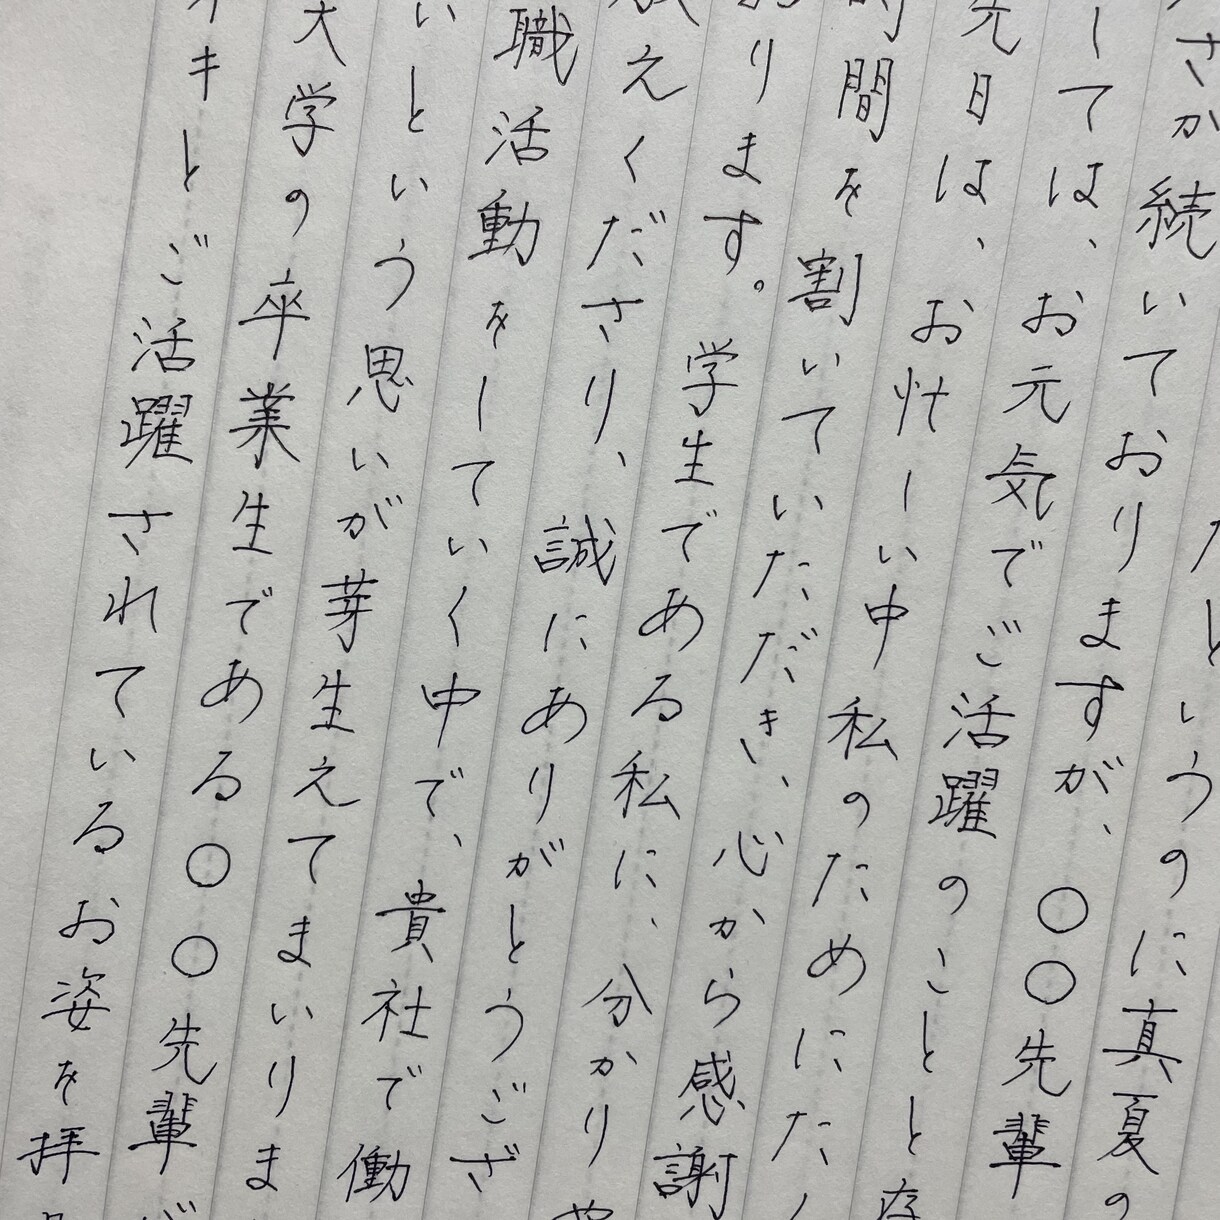 というのに真夏の
さが続いておりますが、〇〇先輩
しては、お元気でご活躍のことと存
先日は、お忙しい中私のためにた
時間を割いていただき、心から感謝
おります。学生である私に、分かり
教えくださり、誠にありがとうござ
職活動をしていく中で、貴社で働
いという思いが芽生えてまいりま
大学の卒業生である〇〇先輩が
キとご活躍されているお姿を拝